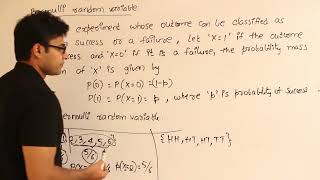 Bernoulli random variable
experiment whose outcome can be classified as
success or a failure, let 'X=1' if the outcome
success and 'X=0' if it is a failure, the probability mass
of 'X' is given by
P(0) = P(X=0) = (1-p)
P(1) = P(X=1) = p, where 'p' is probability of success
random variable
2, 3, 4, 5, 6} {HH, HT, HT, TT}
5/6